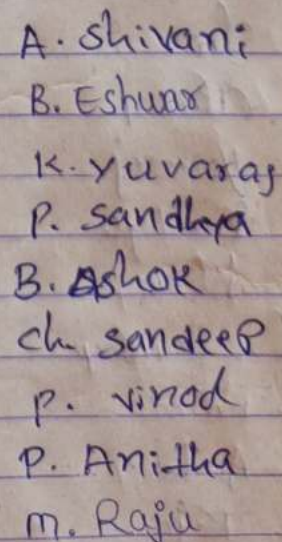 A. Shivani
B. Eshwar
K. Yuvaraj
P. Sandhya
B. Ashok
Ch. Sandeep
P. Vinod
P. Anitha
M. Raju